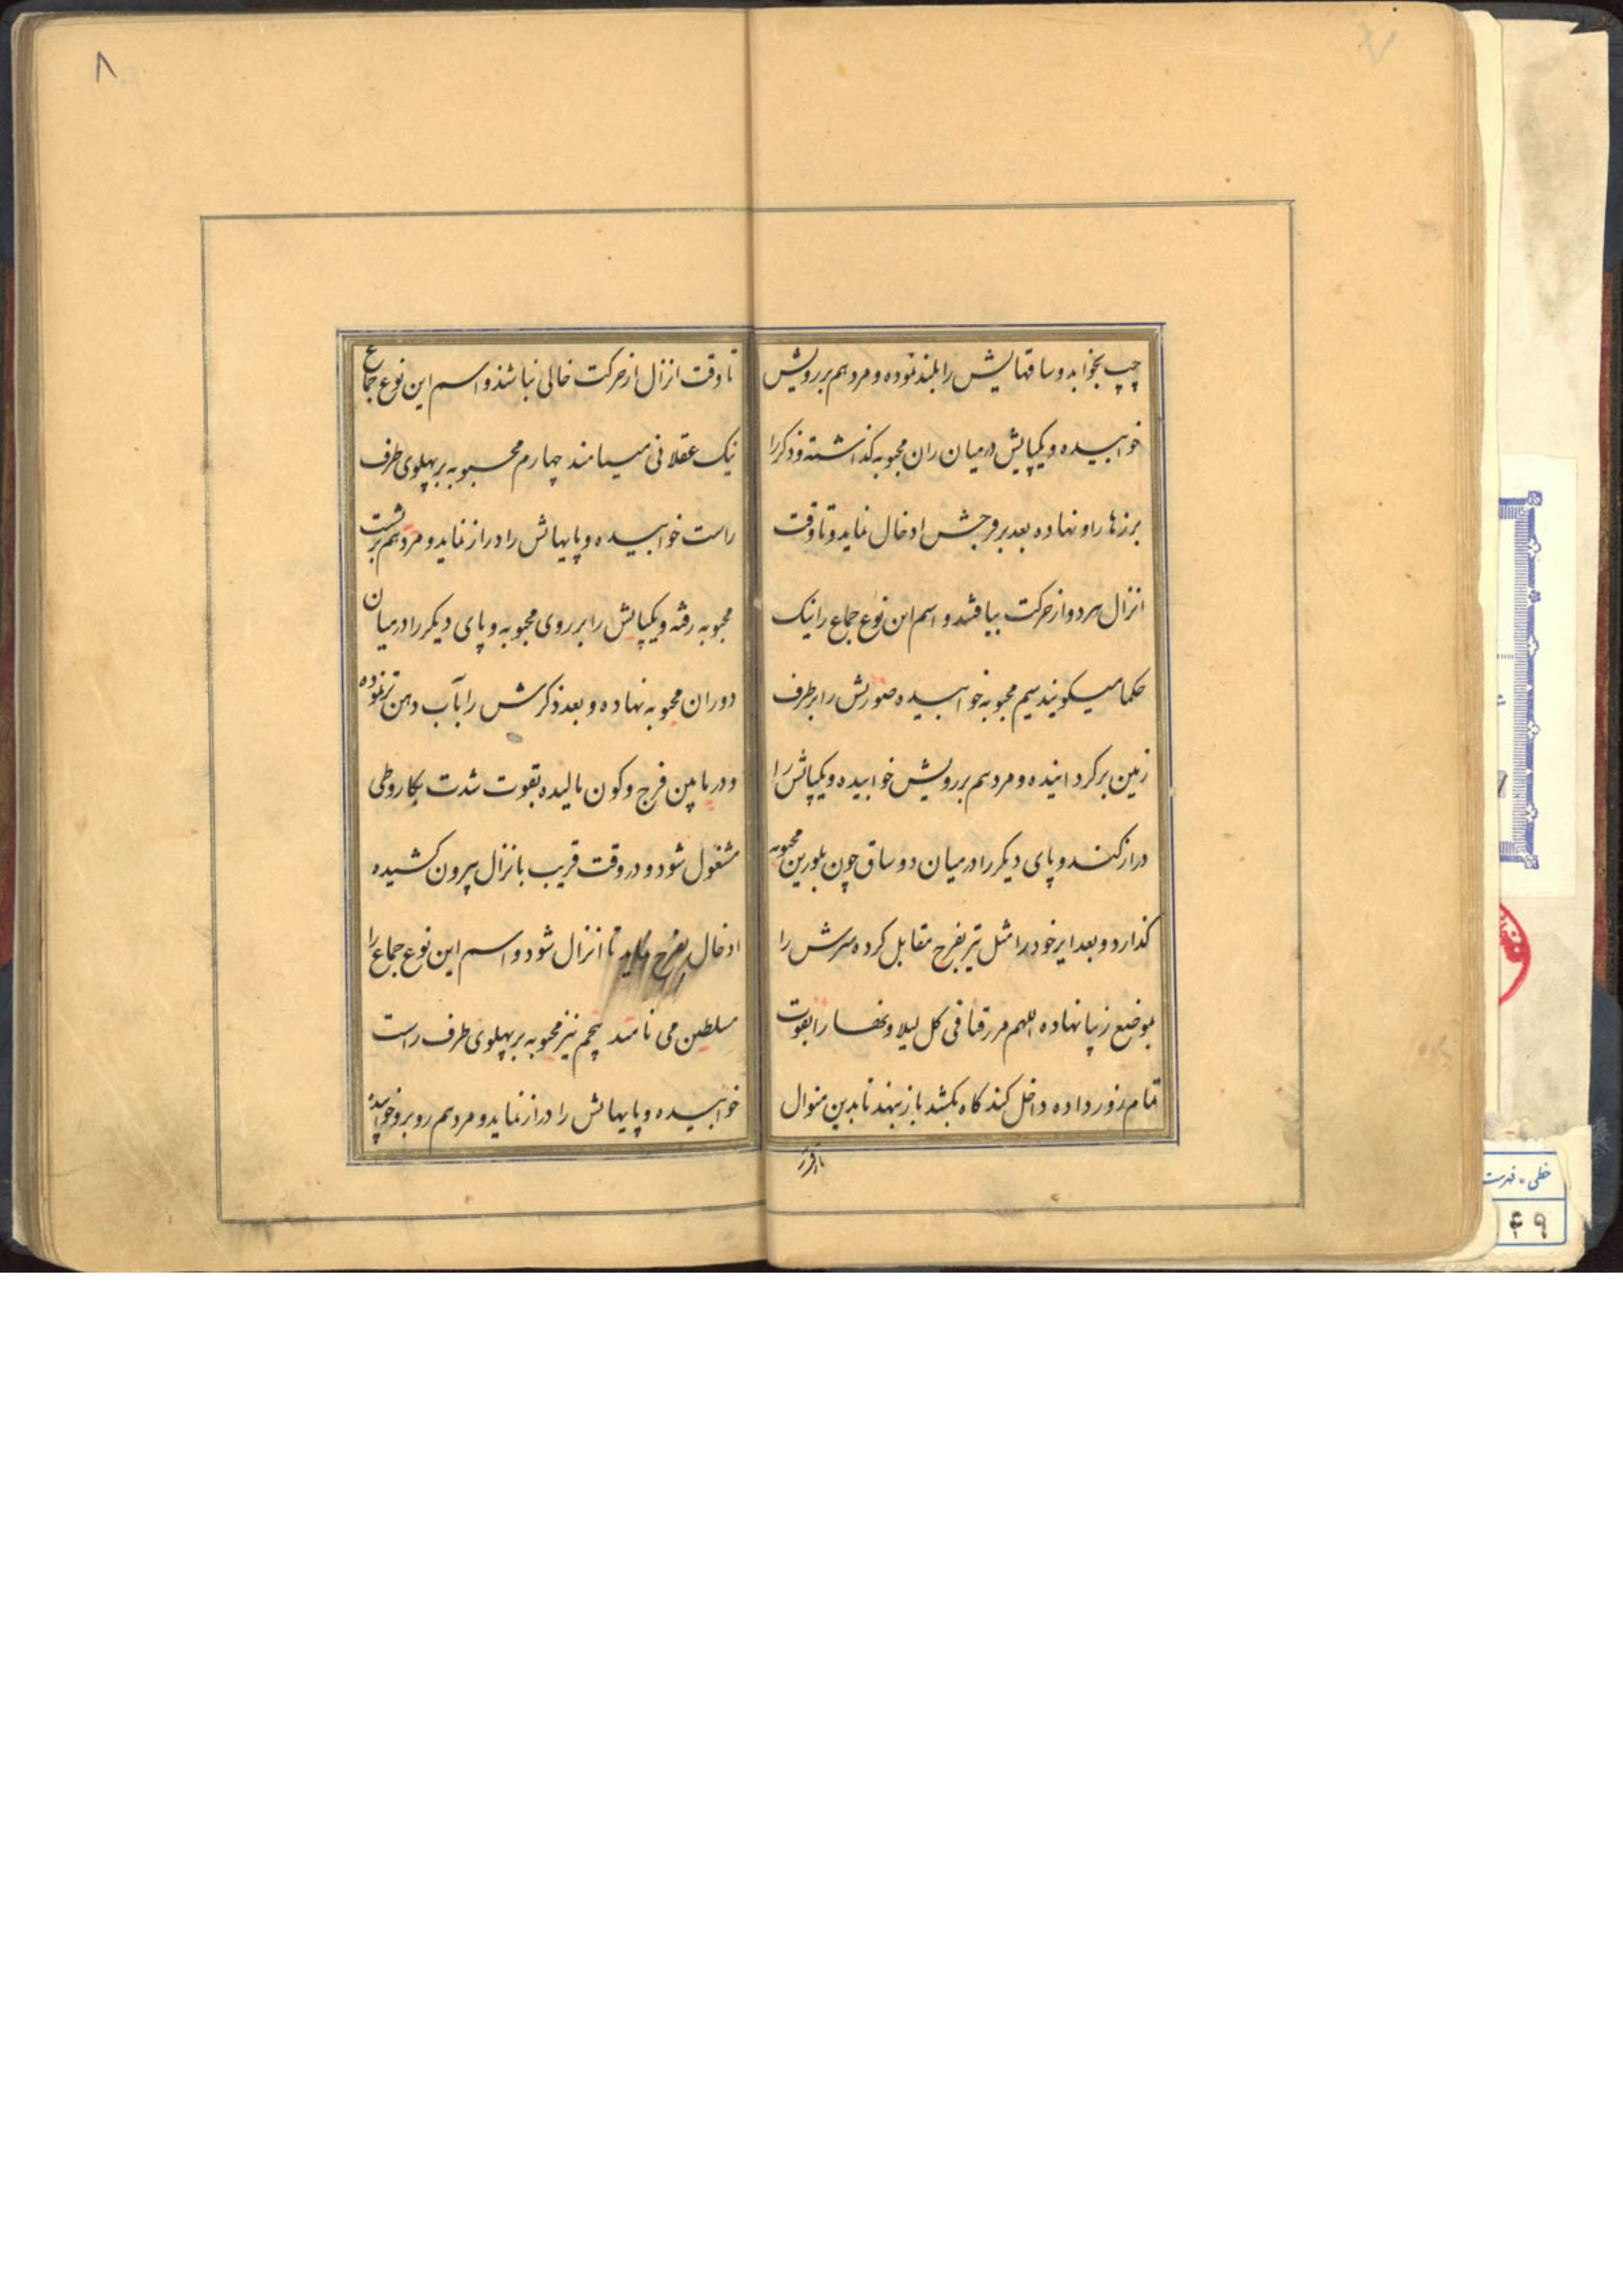 ۷
چپ بخوابد و ساقهایش را بلند نموده و مرد هم بر رویش
خوابیده و یکپایش درمیان ران محبوبه کذاشته و ذکر را
برزها را و نهاده بعد بر فرجش ادخال نماید و تا وقت
انزال هر دو از حرکت بیافتند و اسم این نوع جماع را نیک
حکما میکویند سیم محبوبه خوابیده صورتش را بر طرف
زمین برکردانیده و مرد هم بر رویش خوابیده و یکپاش را
دراز کند و پای دیکر را درمیان دو ساق چون بلورین محبوبه
کذارد و بعد ایر خود را مثل تیر بفرج مقابل کرده سرش را
بموضع زیبا نهاده اللهم فی کل لیلا و نهارا بقوت
تمام زور داده داخل کند کاه بکشد باز بنهد تا بدین منوال
۸
تا وقت انزال از حرکت خالی نباشد و اسم این نوع جماع
نیک عقلانی مینامند چهارم محبوبه بر پهلوی طرف
راست خوابیده و پایهاش را دراز نماید و مرد هم بر پشت
محبوبه رفته و یکپایش را بر روی محبوبه و پای دیکر را درمیان
دو ران محبوبه نهاده و بعد ذکرش را بآب دهن تر نموده
و در مابین فرج و کون مالیده بقوت شدت بکار وطی
مشغول شود و در وقت قریب بانزال بیرون کشیده
ادخال بفرج نماید تا انزال شود و اسم این نوع جماع را
سلطین می نامند پنجم نیز محبوبه بر پهلوی طرف راست
خوابیده و پایهاش را دراز نماید و مرد هم روبرو خوابیده
خطی - فهرست